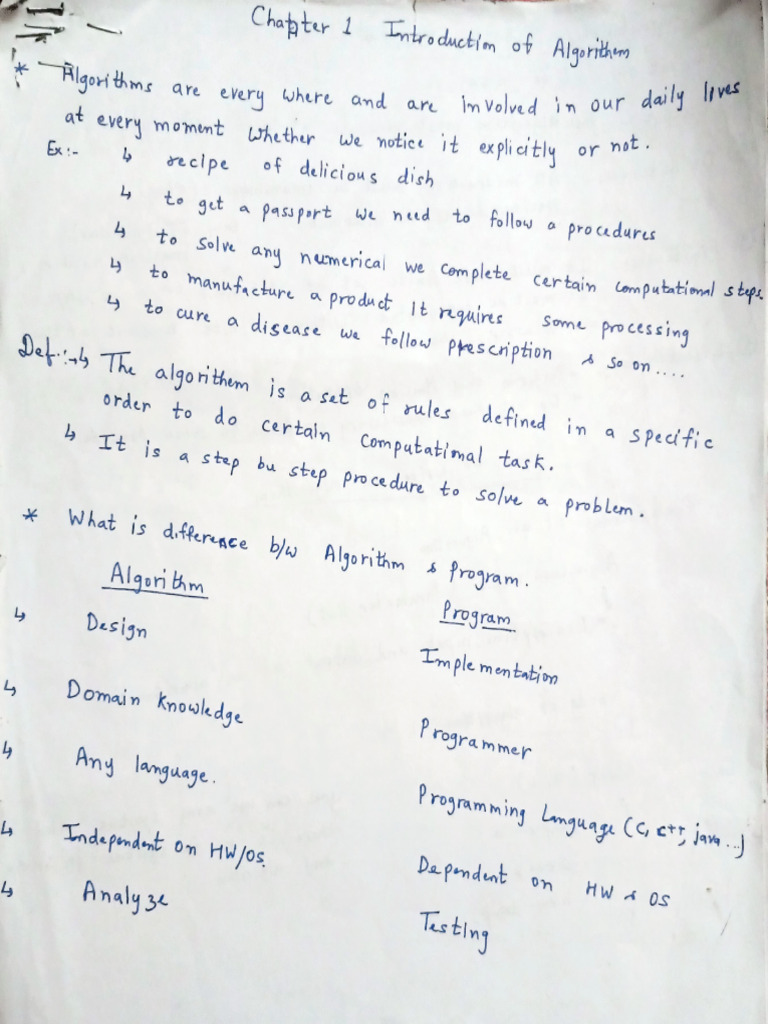 Chapter 1 Introduction of Algorithem
* Algorithms are every where and are involved in our daily lives
at every moment whether we notice it explicitly or not.
Ex:- ↳ recipe of delicious dish
↳ to get a passport we need to follow a procedures
↳ to solve any numerical we complete certain computational steps.
↳ to manufacture a product it requires some processing
↳ to cure a disease we follow prescription & so on....
Def:→↳ The algorithem is a set of rules defined in a specific
order to do certain computational task.
↳ It is a step bu step procedure to solve a problem.
* What is difference b/w Algorithm & Program.
Algorithm Program
↳ Design Implementation
↳ Domain knowledge Programmer
↳ Any language. Programming Language (C, C++, java...)
↳ Independent on HW/OS. Dependent on HW & OS
↳ Analyze Testing